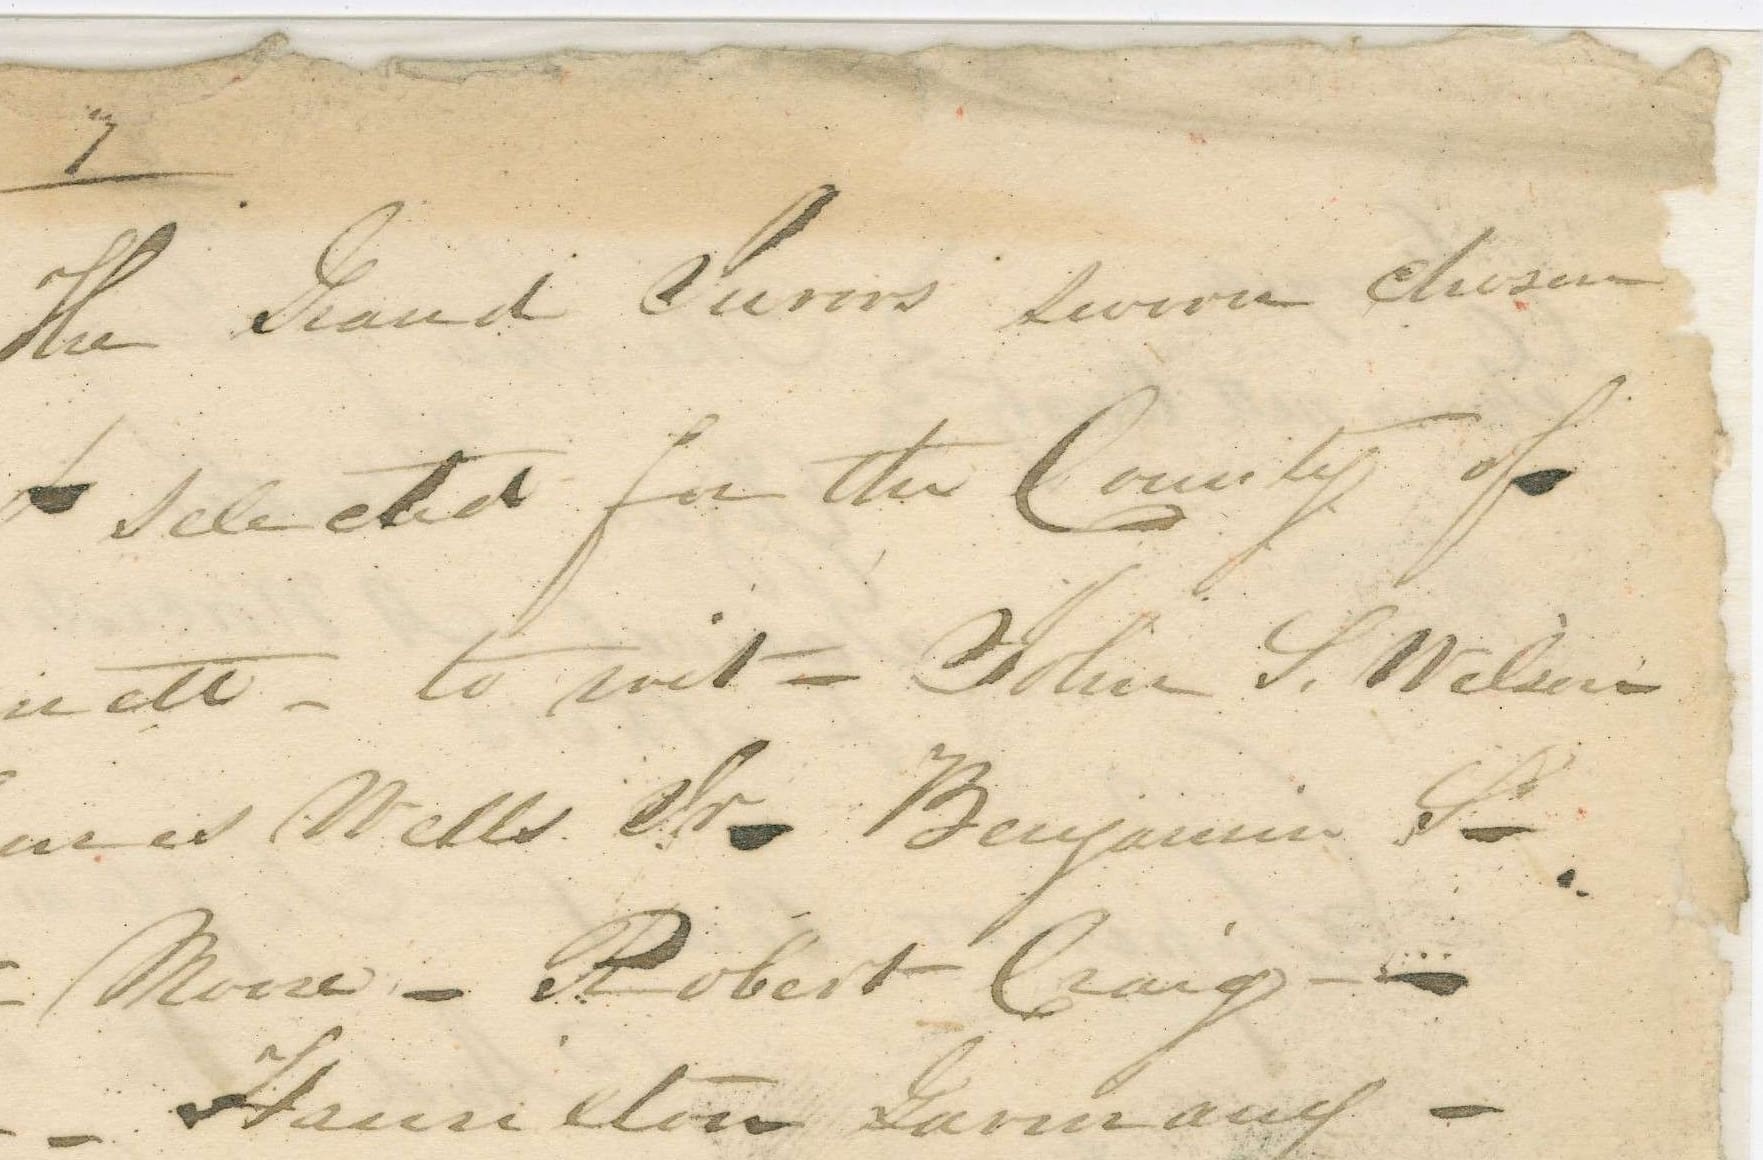 7
The Grand Jurors sworn chosen
selected for the County of
nett - to wit - John S. Wilson
mes Wells Sr - Benjamin S
- Moore - Robert Craig -
- Hamilton Garmany -